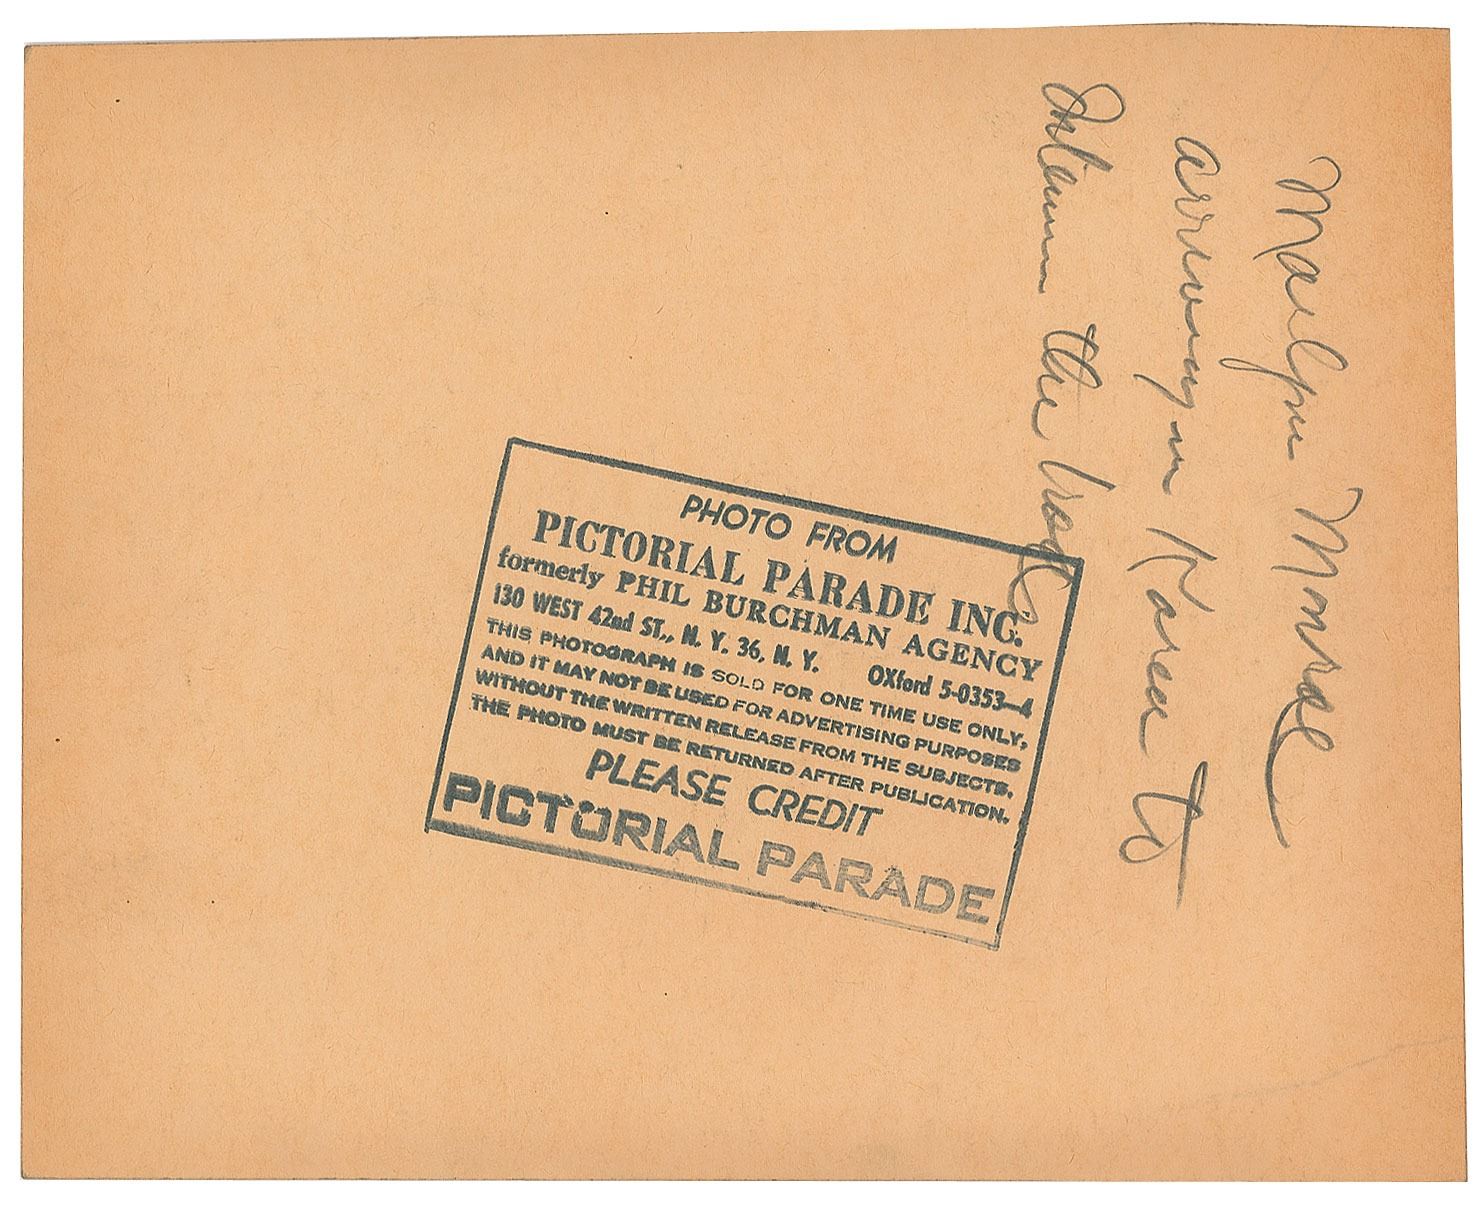 Marilyn Monroe
arriving in Korea to
the troops
PHOTO FROM
PICTORIAL PARADE INC.
formerly PHIL BURCHMAN AGENCY
130 WEST 42nd ST., N. Y. 36, N. Y. OXford 5-0353-4
THIS PHOTOGRAPH IS SOLD FOR ONE TIME USE ONLY,
AND IT MAY NOT BE USED FOR ADVERTISING PURPOSES
WITHOUT THE WRITTEN RELEASE FROM THE SUBJECTS.
THE PHOTO MUST BE RETURNED AFTER PUBLICATION.
PLEASE CREDIT
PICTORIAL PARADE